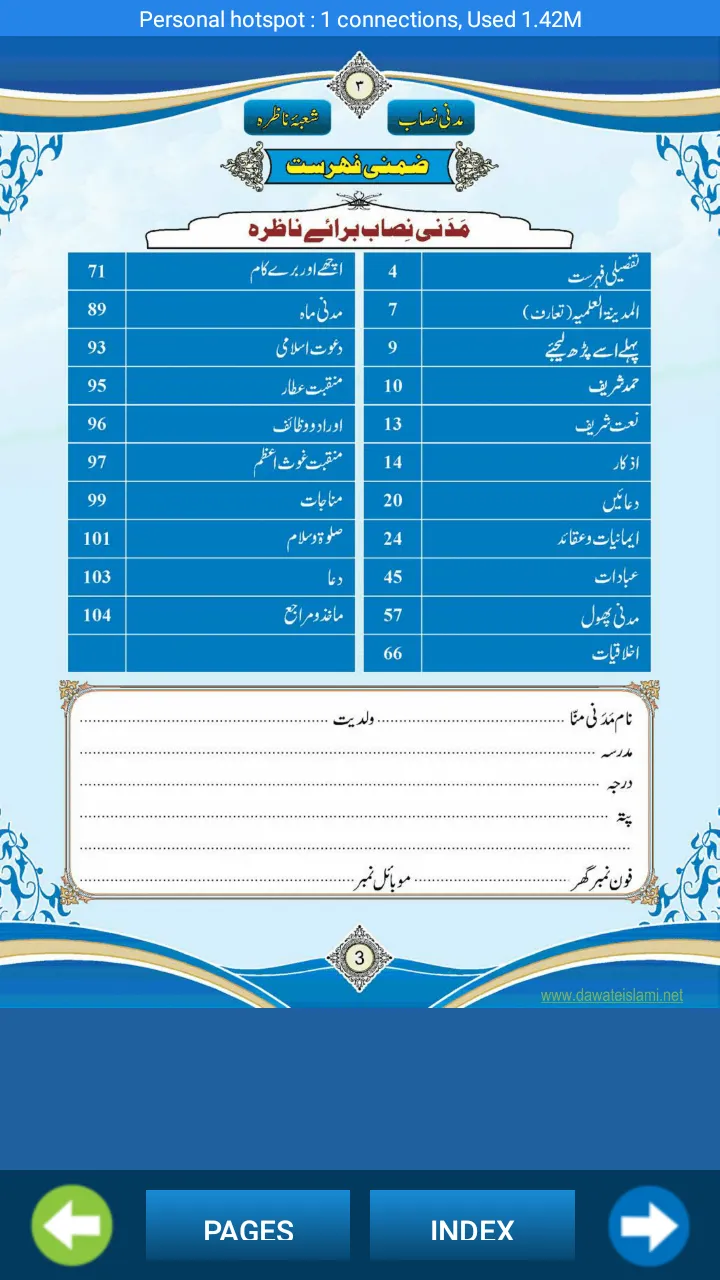 Personal hotspot : 1 connections, Used 1.42M
۳
مدنی نصاب شعبۂ ناظرہ
ضمنی فہرست
مَدَنی نِصاب برائے ناظرہ
تفصیلی فہرست 4 اچھے اور برے کام 71
المدینۃ العلمیہ (تعارف) 7 مدنی ماہ 89
پہلے اسے پڑھ لیجئے 9 دعوت اسلامی 93
حمد شریف 10 منقبت عطار 95
نعت شریف 13 اوراد و وظائف 96
اذکار 14 منقبت غوث اعظم 97
دعائیں 20 مناجات 99
ایمانیات و عقائد 24 صلوۃ و سلام 101
عبادات 45 دعا 103
مدنی پھول 57 ماخذ و مراجع 104
اخلاقیات 66
نام مَدَنی منّا ........ ولدیت ........
مدرسہ ........
درجہ ........
پتہ ........
........
فون نمبر گھر ........ موبائل نمبر ........
3
www.dawateislami.net
PAGES INDEX